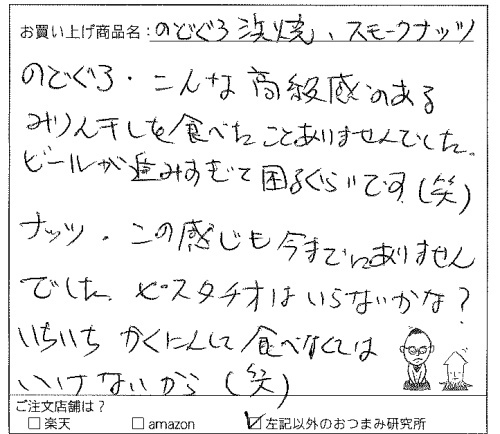 お買い上げ商品名:のどぐろ浜焼、スモークナッツ
のどぐろ・こんな高級感のある
みりん干しを食べたことありませんでした。
ビールが進みすぎて困るぐらいです(笑)
ナッツ・この感じも今までにありません
でした。ピスタチオはいらないかな?
いちいちかくにんして食べなくては
いけないから(笑)
ご注文店舗は?
□楽天 □amazon ☑左記以外のおつまみ研究所